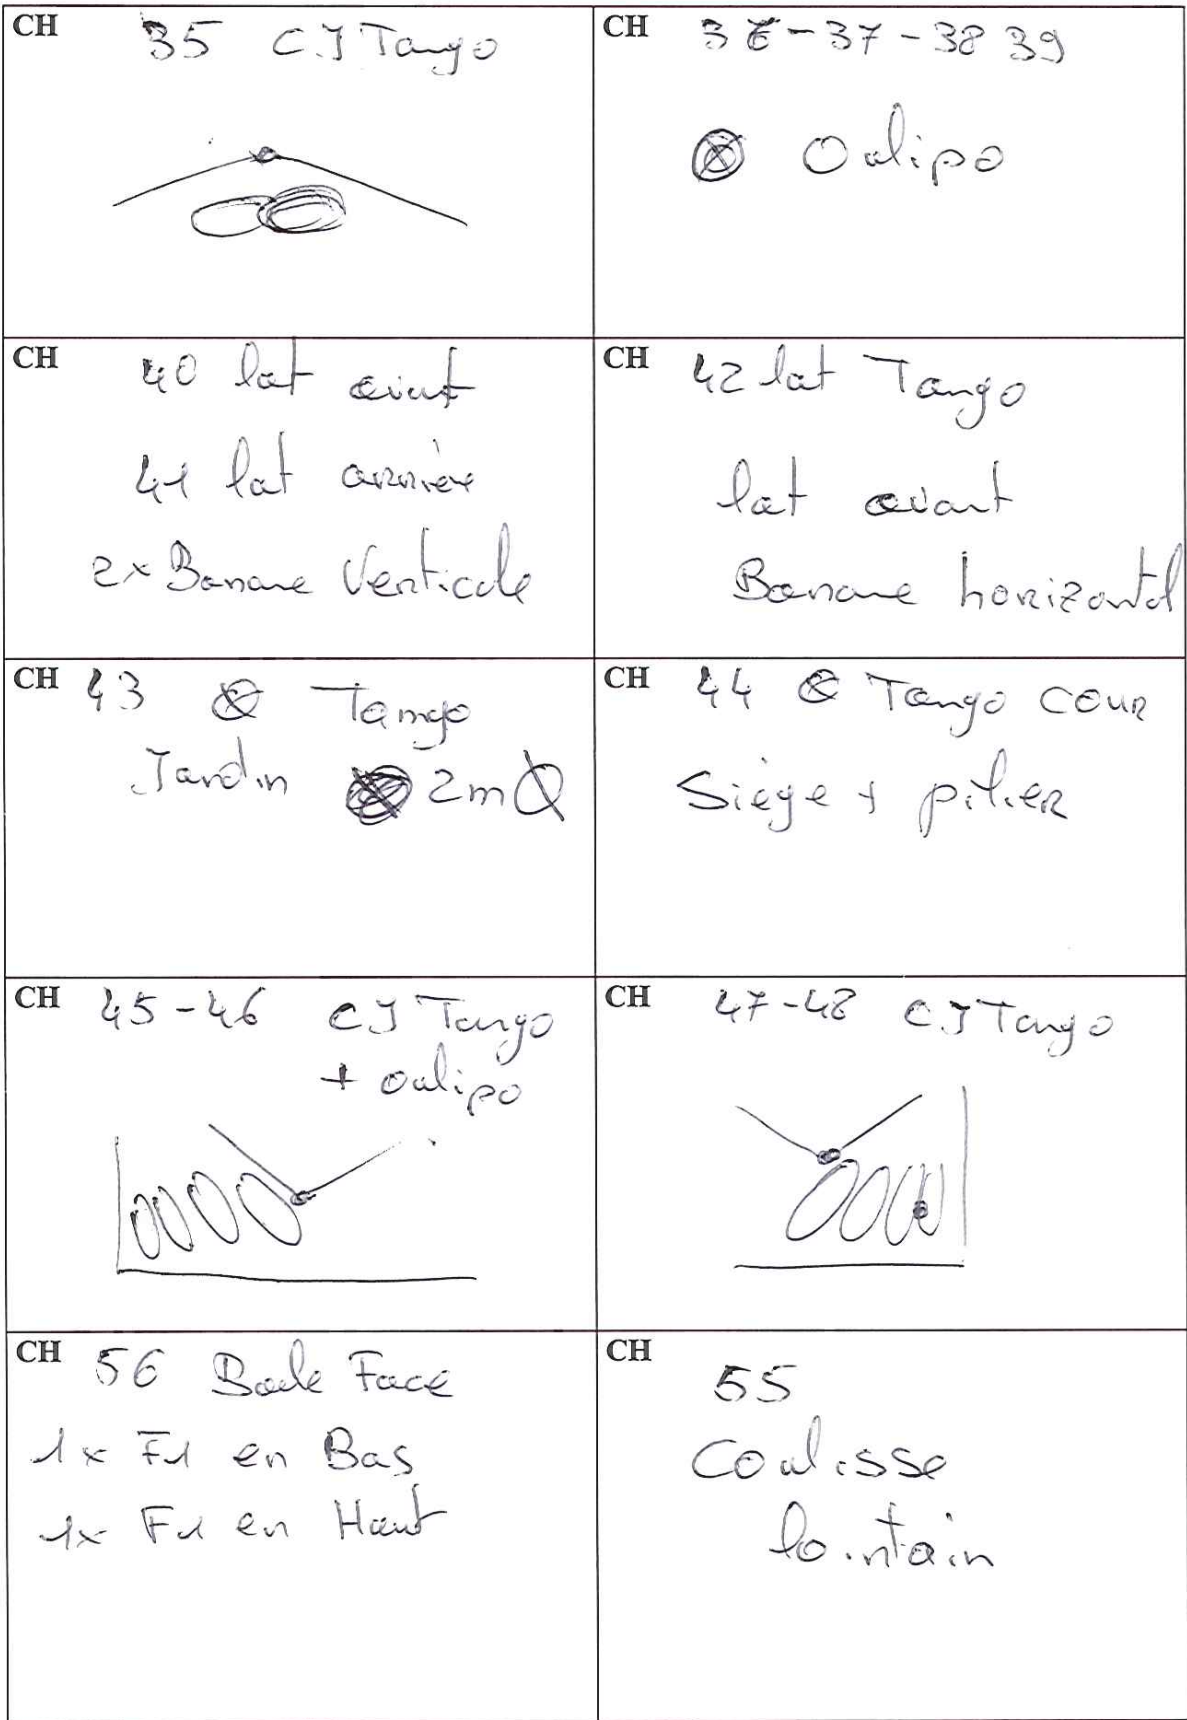 CH 35 CJ Tango
CH 36-37-38 39
Oulipo
CH 40 lat avant
41 lat arrière
2x Banane Verticale
CH 42 lat Tango
lat avant
Banane horizontal
CH 43 Tango
Jardin 2m Ø
CH 44 Tango COUR
Siège + pilier
CH 45-46 CJ Tango
+ oulipo
CH 47-48 CJ Tango
CH 56 Face
1x F1 en Bas
1x F1 en Haut
CH 55
Coulisse
lointain